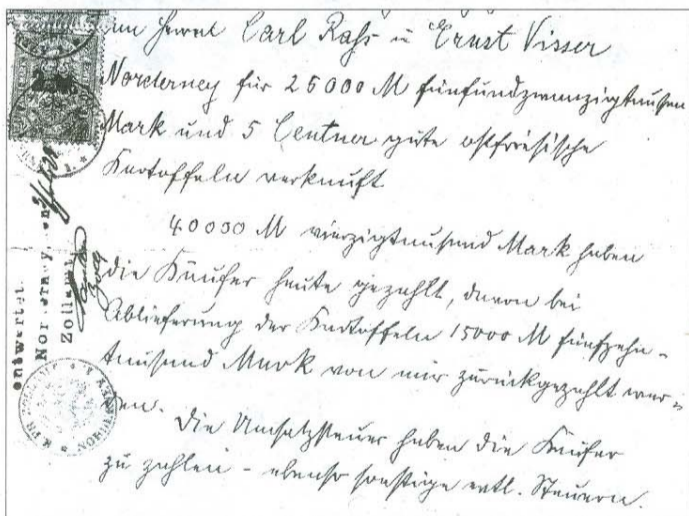 an Herrn Carl Rass u Ernst Visser
Norderney für 25000 M fünfundzwanzigtausen
Mark und 5 Centner gute ostfriesische
Kartoffeln verkauft
40000 M vierzigtausend Mark haben
die Käufer heute gezahlt, davon bei
Ablieferung der Kartoffeln 15000 M fünfzehn-
tausend Mark von mir zurückgezahlt wer-
den.
Die Umsatzsteuer haben die Käufer
zu zahlen - ebenso sonstige evtl. Steuern.
entwertet.
Norderney, den
Zollamt